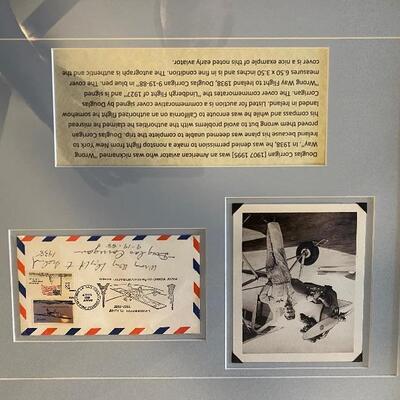 Douglas Corrigan (1907 [1995] was an American aviator who was nicknamed "Wrong
Way". In 1938, he was denied permission to make a nonstop flight from New York to
Ireland because his plane was deemed unable to complete the trip. Douglas Corrigan
proved them wrong but to avoid problems with the authorities he claimed he misread
his compass and while he was enroute to California on an authorized flight he somehow
landed in Ireland. Listed for auction is a commemorative cover signed by Douglas
Corrigan. The cover commemorates the "Lindbergh Flight of 1927" and is signed
"Wrong Way Flight to Ireland 1938, Douglas Corrigan 9-19-88" in blue pen. The cover
measures 6.50 x 3.50 inches and is in fine condition. The autograph is authentic and the
cover is a nice example of this noted early aviator.
LINDBERGH FLIGHT
Wrong Way Flight to Ireland
1938
Douglas Corrigan
9-19-88